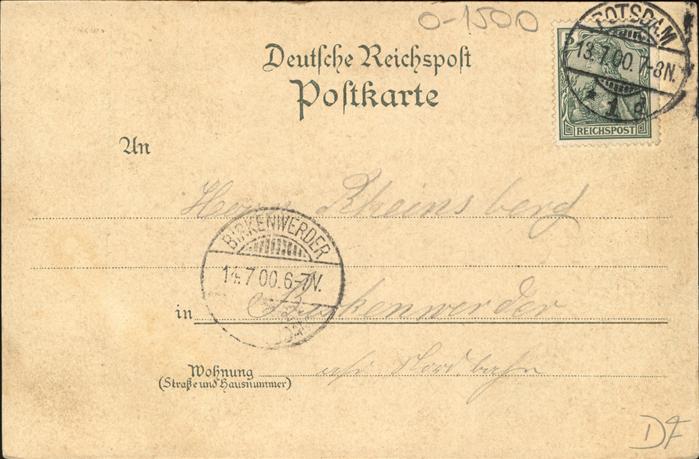 0-1500
Deutsche Reichspost
Postkarte
POTSDAM
13.7.00.7-8N.
* 1 d.
REICHSPOST
An
Herrn Rheinsberg
BIRKENWERDER
14.7.00.6-7V.
in Birkenwerder
Wohnung
(Straße und Hausnummer)
Nordbahn
DF